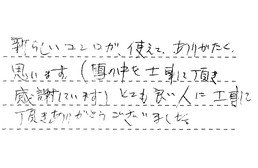 新らしいコンロが、使えて、ありがたく、
思います。(雪の中を工事して頂き
感謝しています) とても良い人に工事して
頂きありがとうございました。